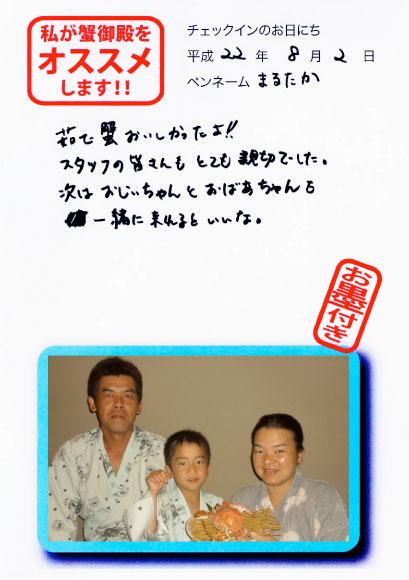 私が蟹御殿を
オススメ
します!!
チェックインのお日にち
平成 22 年 8 月 2 日
ペンネーム まるたか
茹で蟹おいしかったよ!!
スタッフの皆さんもとても親切でした。
次はおじいちゃんとおばあちゃんも
一緒に来れるといいな。
お墨付き